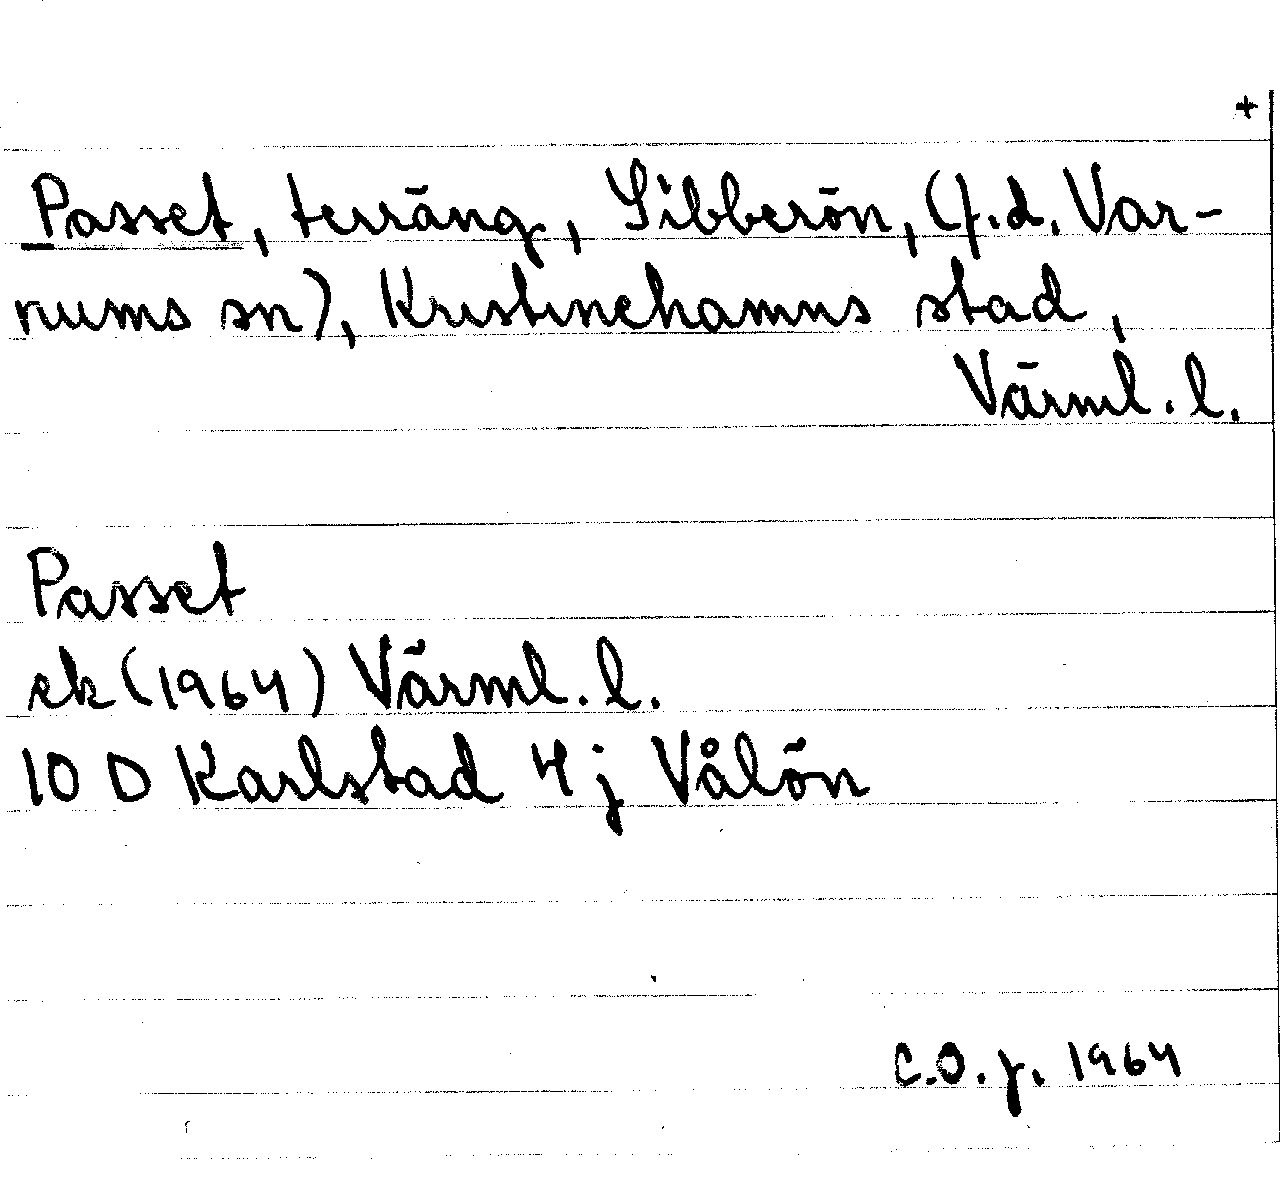 +
Passet, terräng, Sibberön, (f.d. Var-
nums sn), Kristinehamns stad,
Värml. l.
Passet
ek (1964) Värml. l.
10 D Karlstad 4 j Vålön
C.O.f. 1964